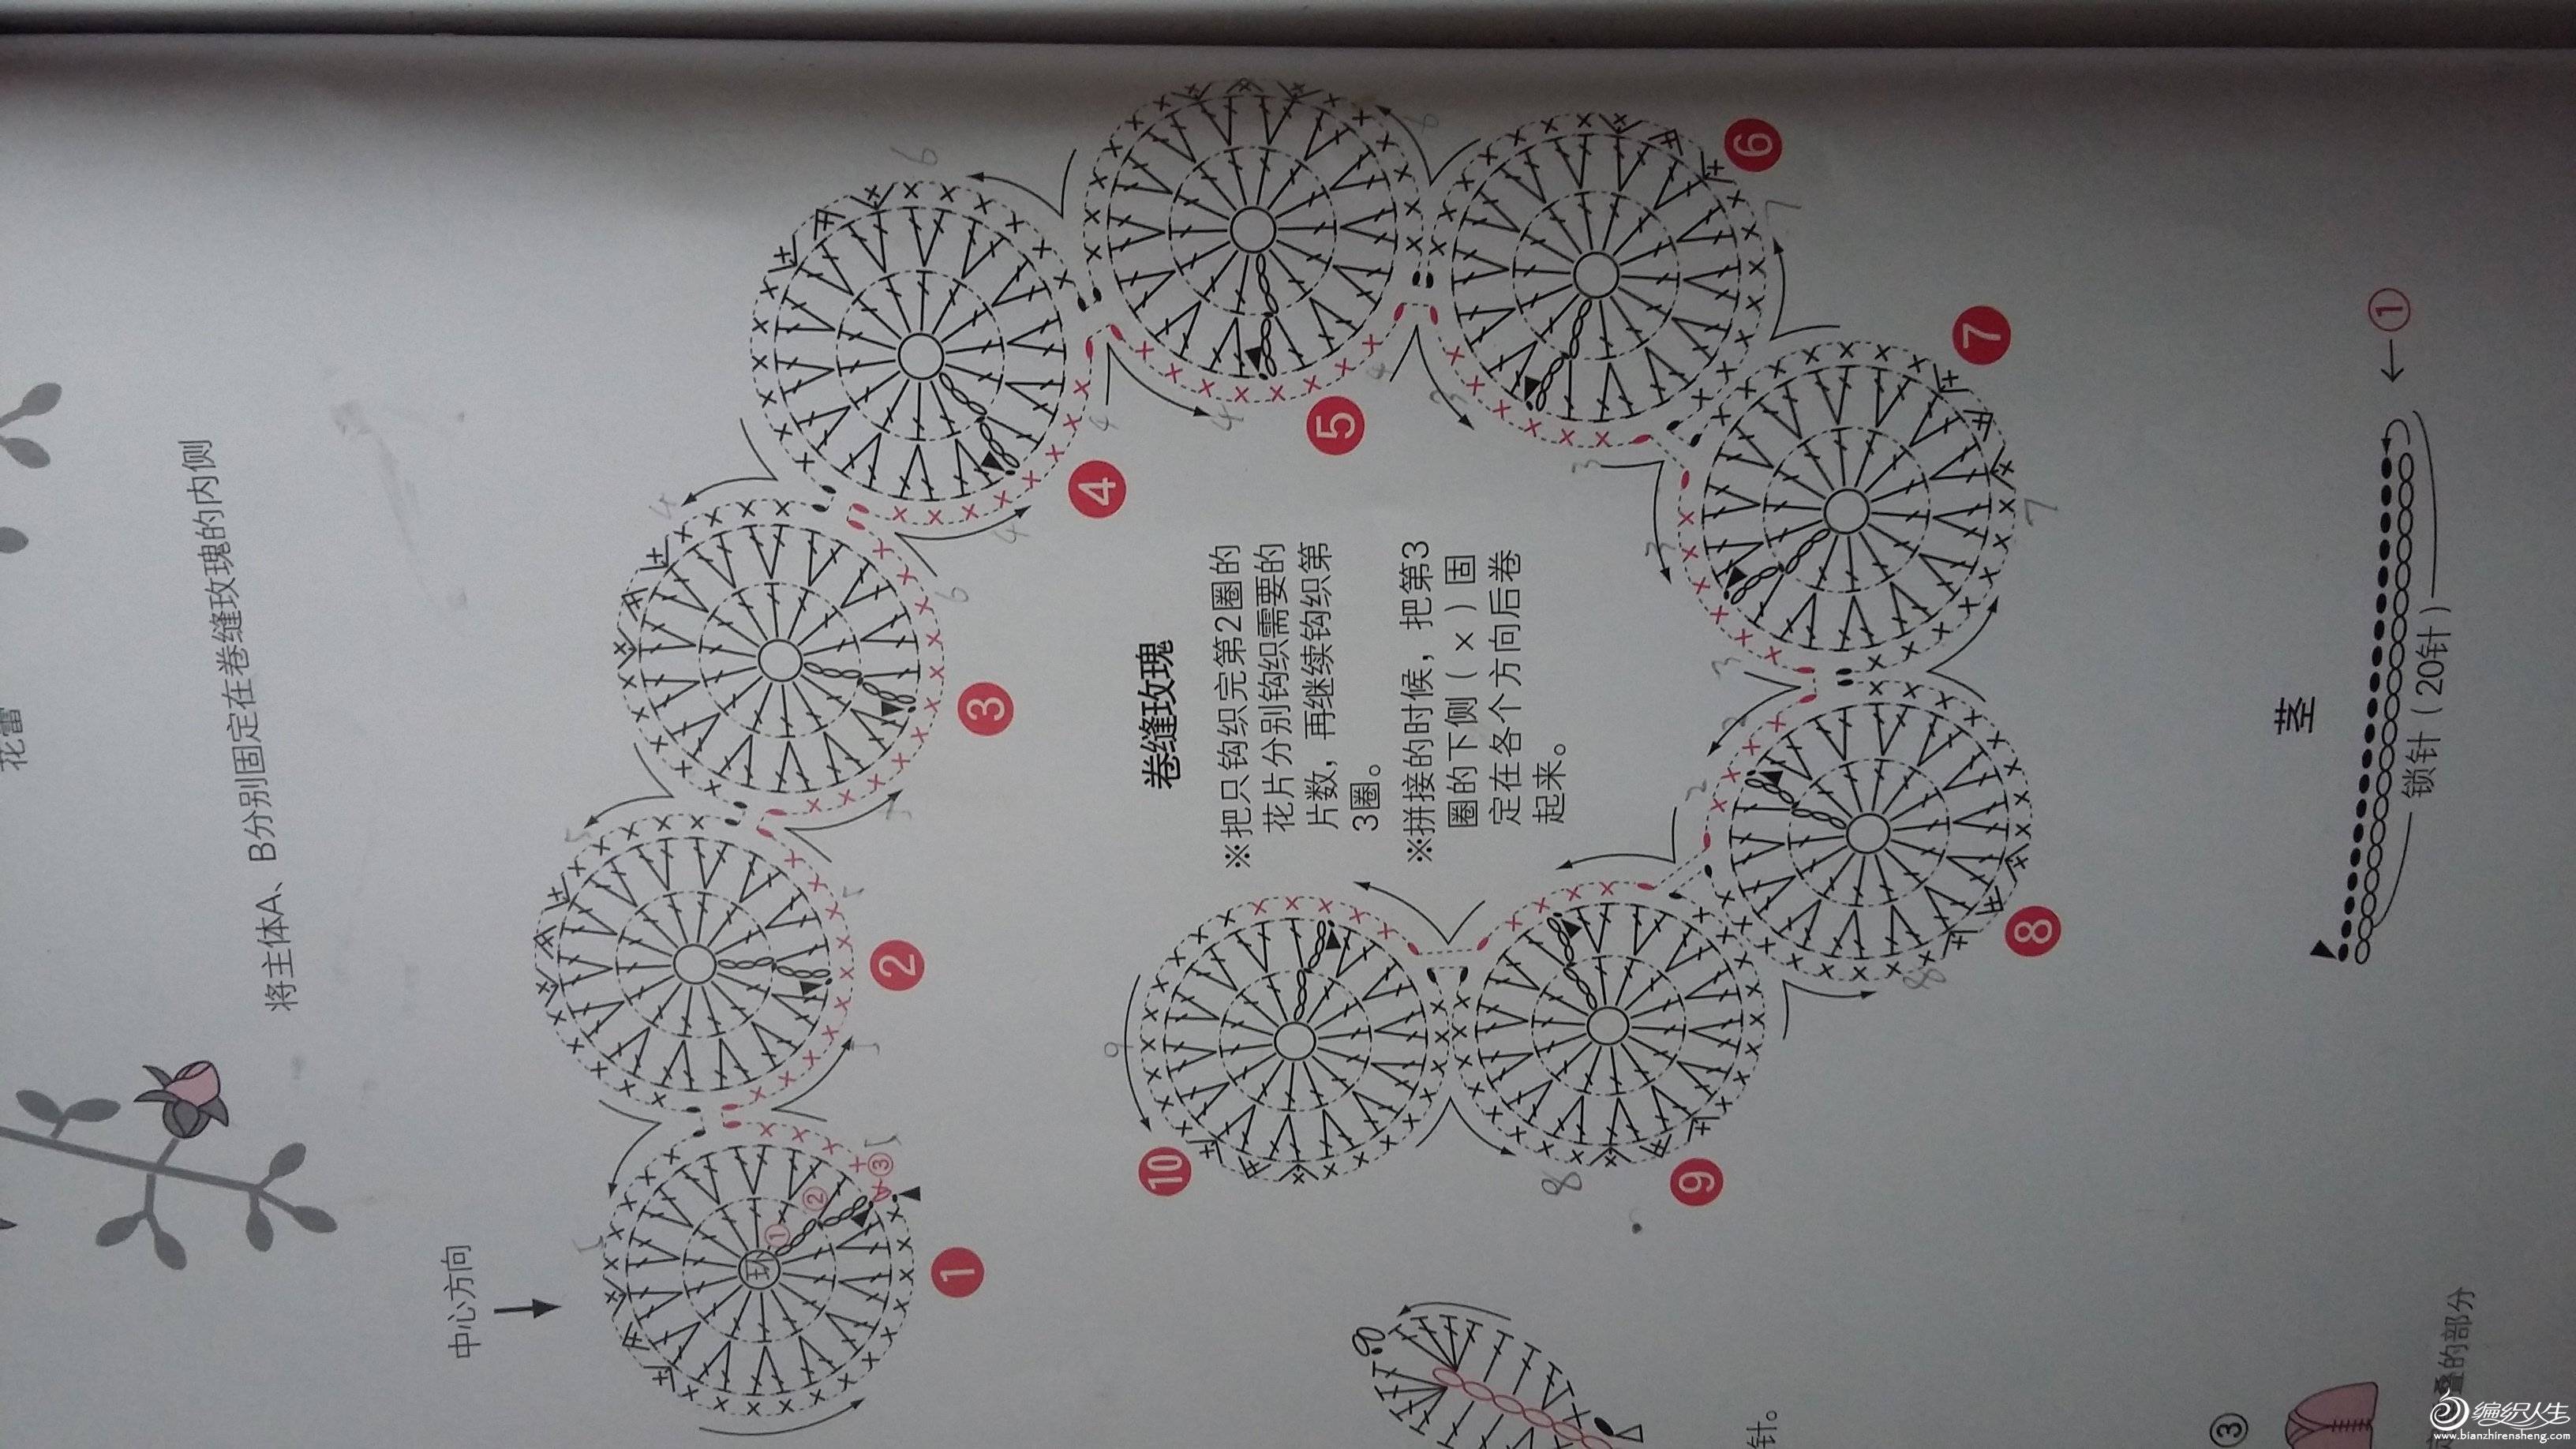 花蕾
将主体A、B分别固定在卷缝玫瑰的内侧
中心方向
环
①
②
③
1
2
3
4
5
6
7
8
9
10
卷缝玫瑰
※把只钩织完第2圈的
花片分别钩织需要的
片数，再继续钩织第
3圈。
※拼接的时候，把第3
圈的下侧（×）固
定在各个方向后卷
起来。
茎
锁针（20针）
←①
针。
③
叠的部分
编织人生
www.bianzhirensheng.com